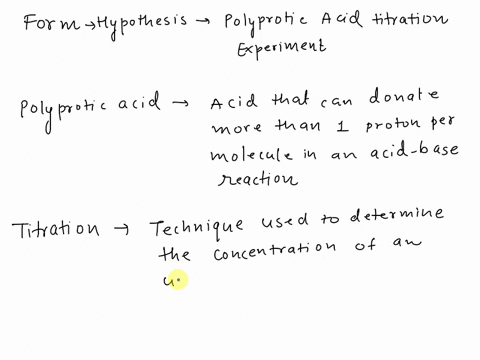 Form → Hypothesis → Polyprotic Acid titration
Experiment
Polyprotic acid → Acid that can donate
more than 1 proton per
molecule in an acid-base
reaction
Titration → Technique used to determine
the concentration of an
u